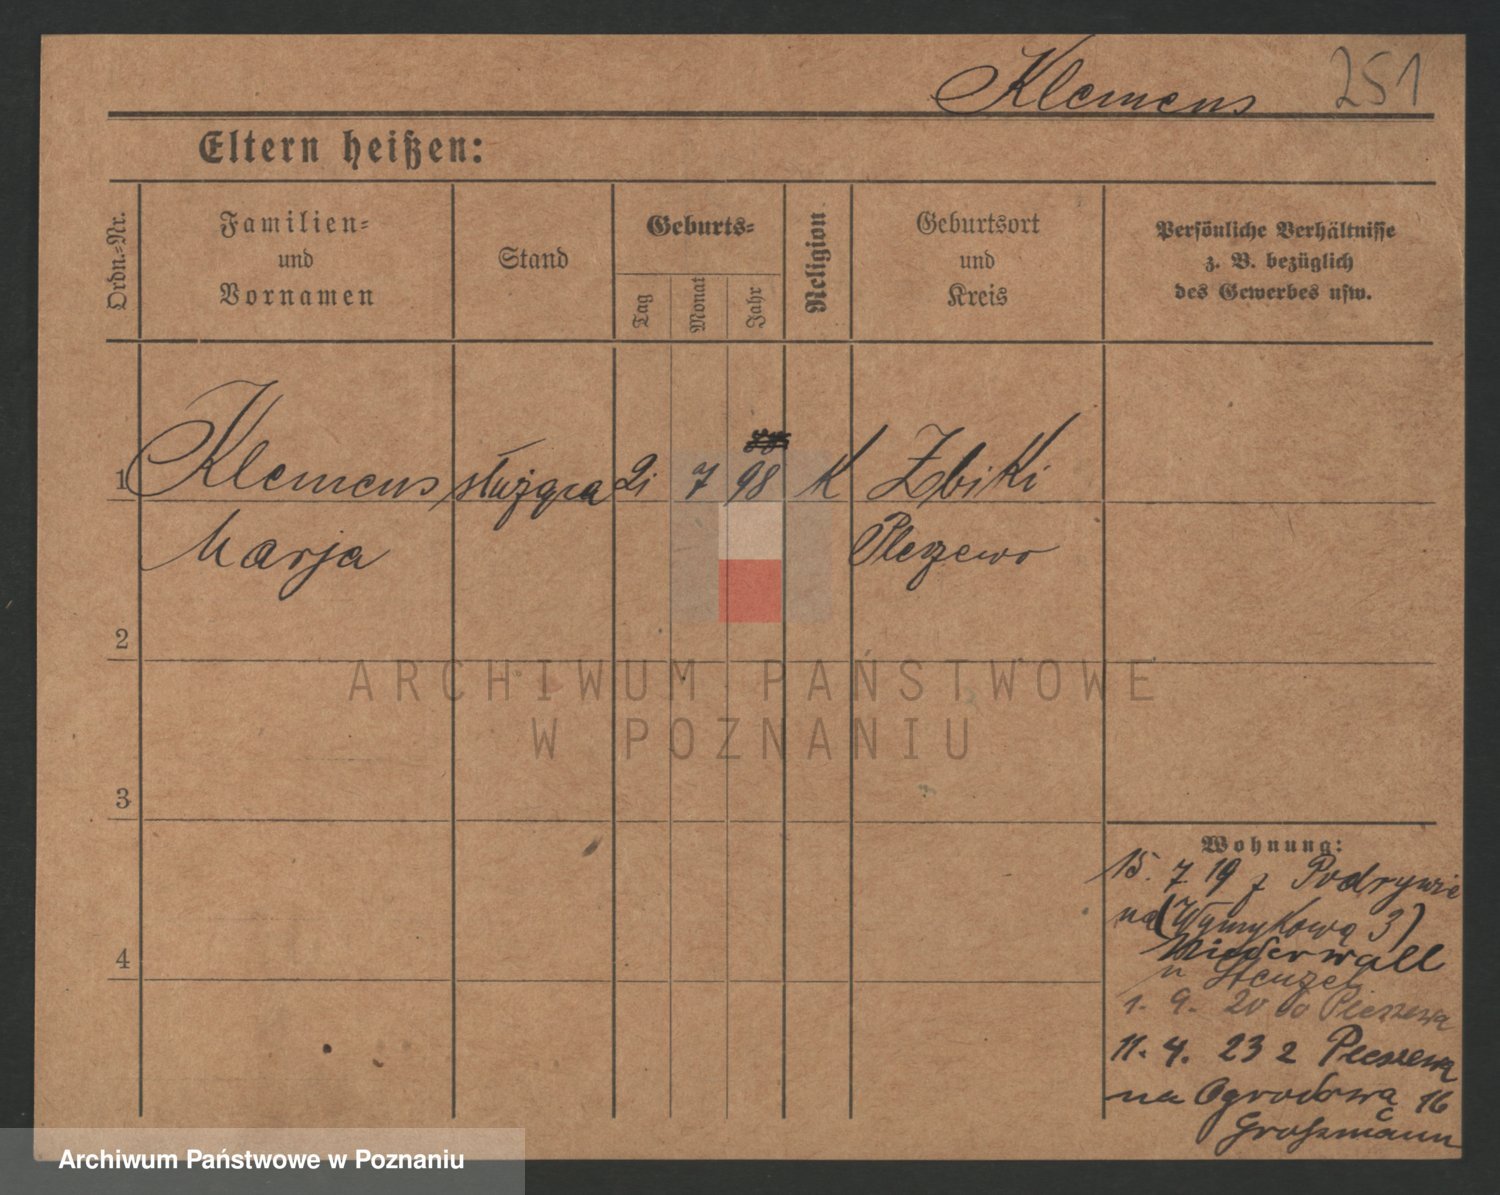 Klemens 251
Eltern heißen:
Ordn.-Nr.
Familien-
und
Vornamen
Stand
Geburts-
Tag
Monat
Jahr
Religion
Geburtsort
und
Kreis
Persönliche Verhältnisse
z. B. bezüglich
des Gewerbes usw.
1 Klemens służąca 21 7 98 K Zbiki
Marja Pleszewo
2
ARCHIWUM PAŃSTWOWE
W POZNANIU
3
Wohnung:
15. 7 19 z
na 3)
Niederwall
u Stenzel
1. 9. 20 do Pleszewa
4
11. 4. 23 z Pleszewa
na Ogrodową 16
Großmann
Archiwum Państwowe w Poznaniu